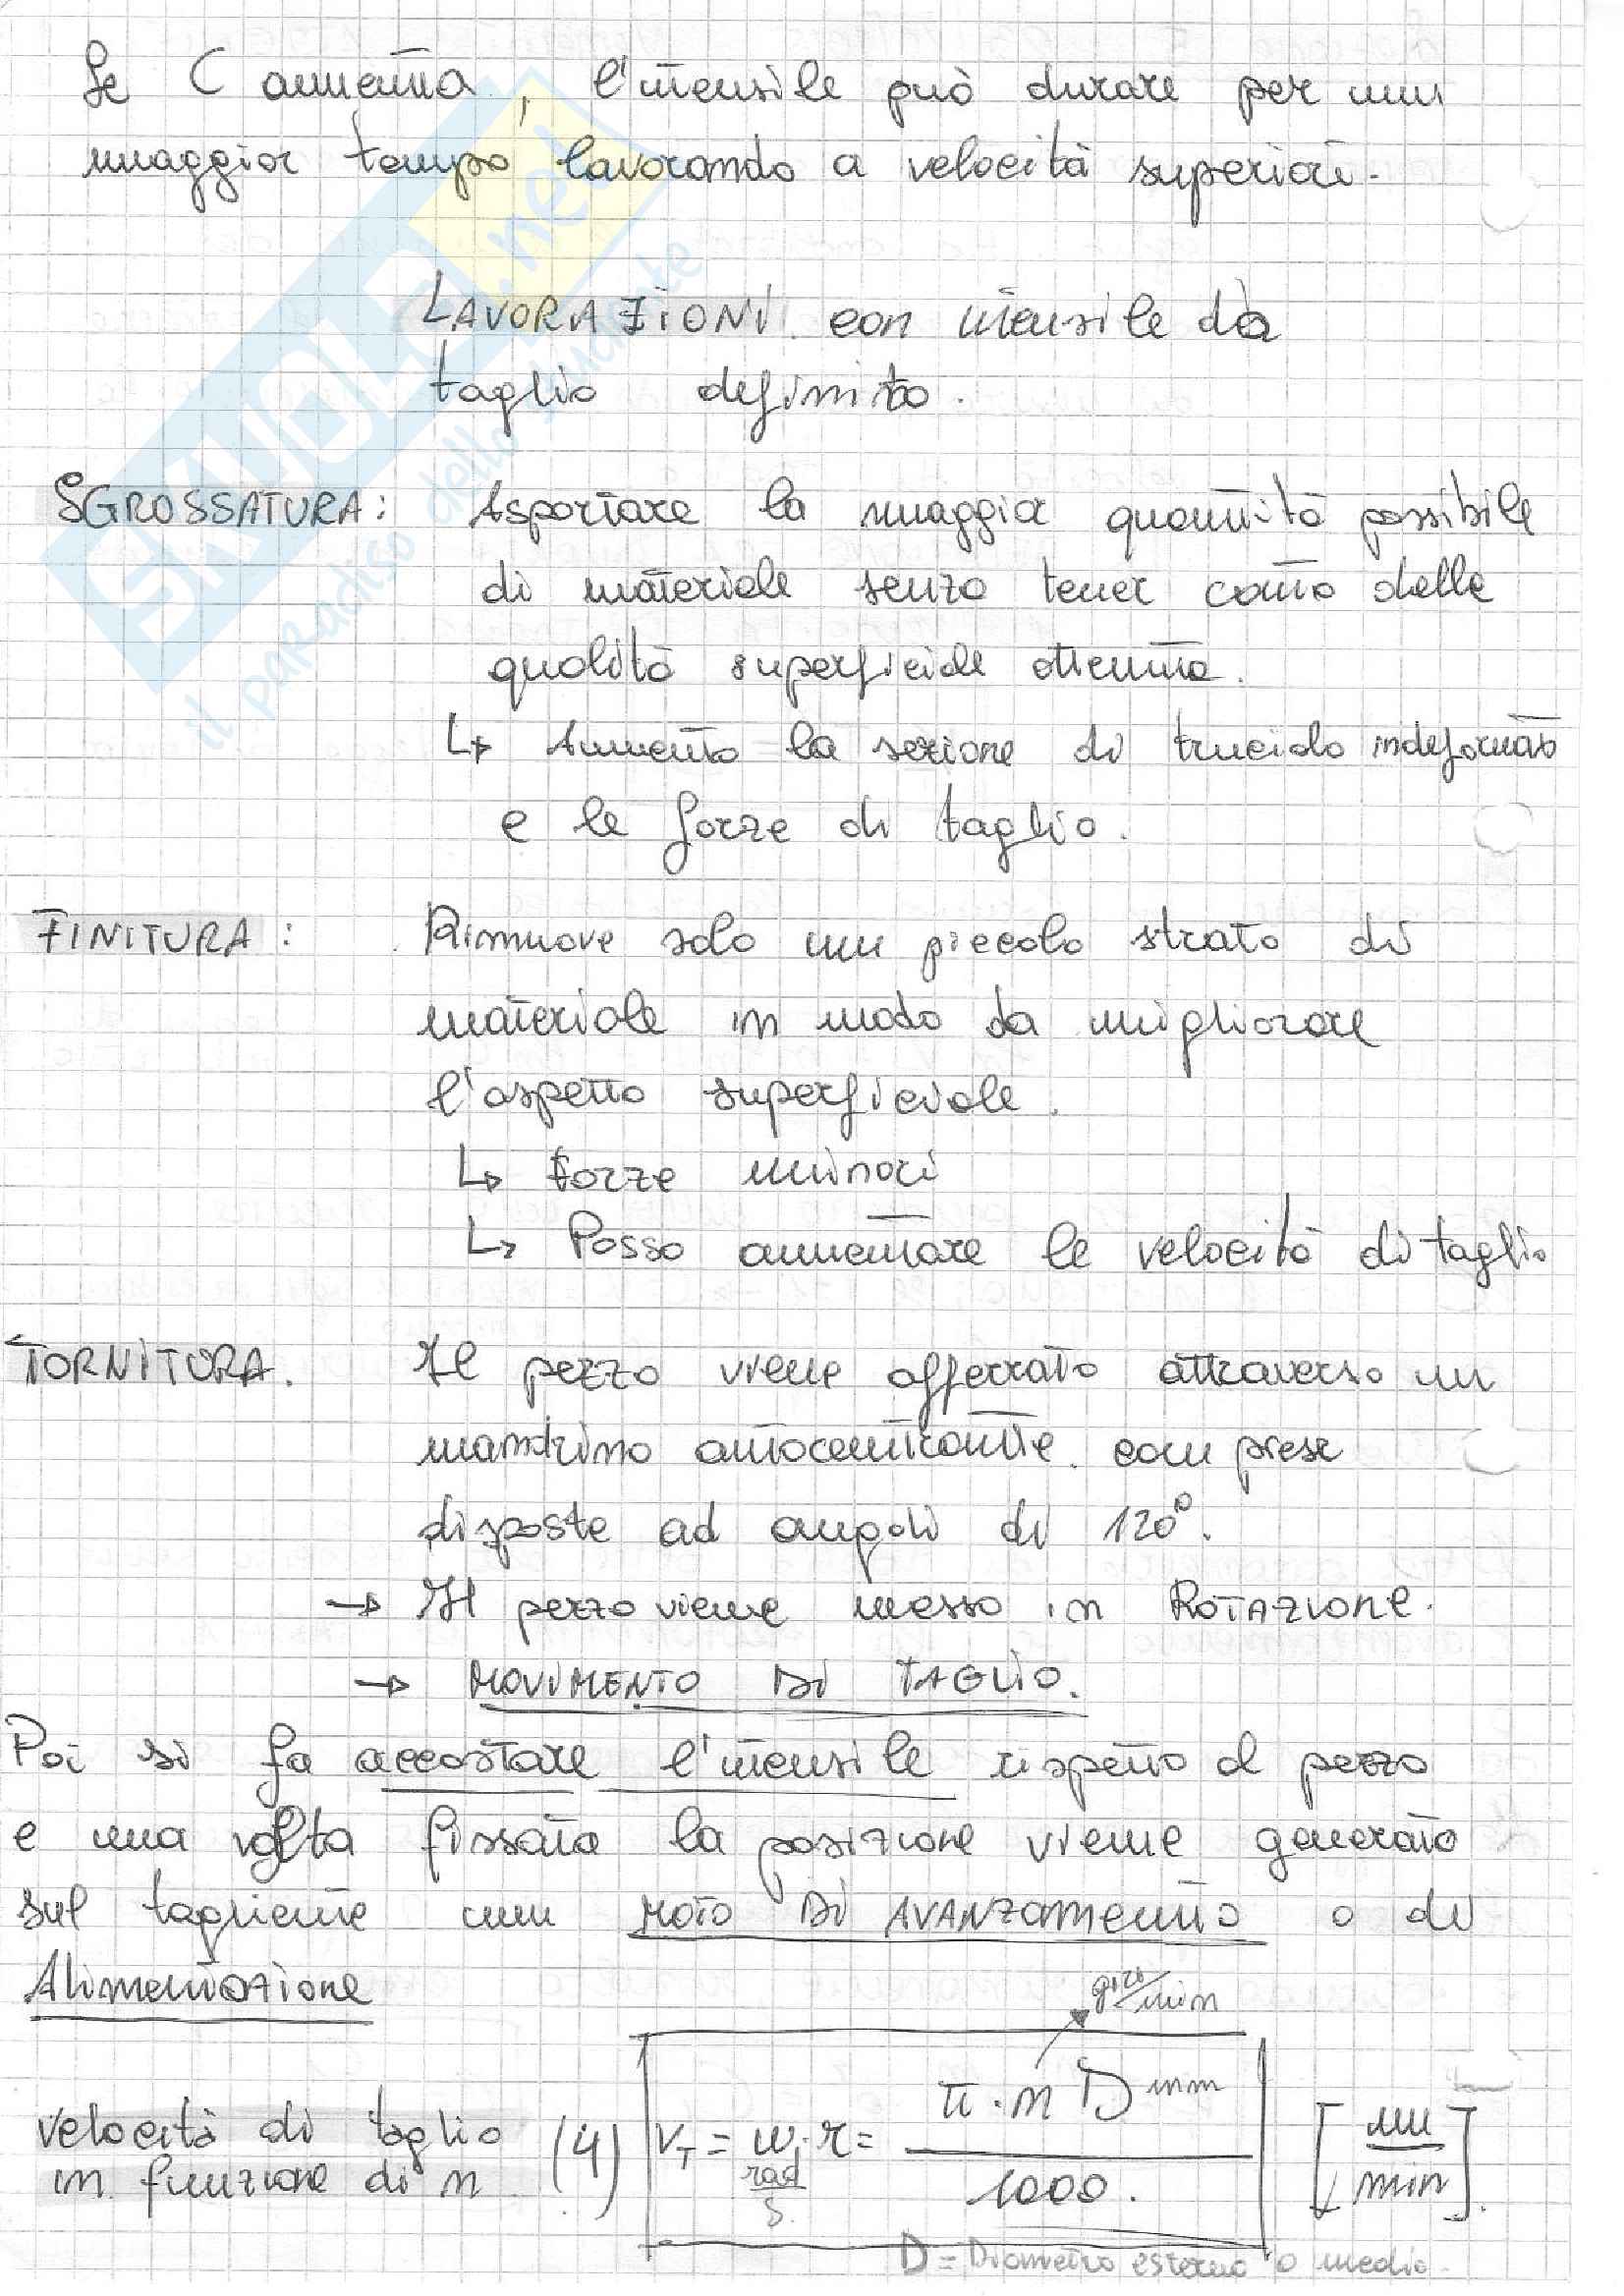 Se C aumenta, l'utensile può durare per un
maggior tempo lavorando a velocità superiori.
LAVORAZIONI con utensile da
taglio definito.
SGROSSATURA: Asportare la maggior quantità possibile
di materiale senza tener conto della
qualità superficiale ottenuta.
↳ Aumento la sezione di truciolo indeformato
e le forze di taglio.
FINITURA: Rimuove solo un piccolo strato di
materiale in modo da migliorare
l'aspetto superficiale.
↳ Forze minori
↳ Posso aumentare le velocità di taglio
TORNITURA. Il pezzo viene afferrato attraverso un
mandrino autocentrante con prese
disposte ad angoli di 120°.
→ Il pezzo viene messo in ROTAZIONE.
→ MOVIMENTO DI TAGLIO.
Poi si fa accostare l'utensile rispetto al pezzo
e una volta fissata la posizione viene generato
sul tagliente un MOTO DI AVANZAMENTO o di
Alimentazione
giri/min
velocità di taglio in funzione di n (4) V_T = ω·r = π·n D^mm / 1000. [m/min].
rad/s
D = Diametro esterno o medio.
SKUOLA.net
il paradiso dello studente